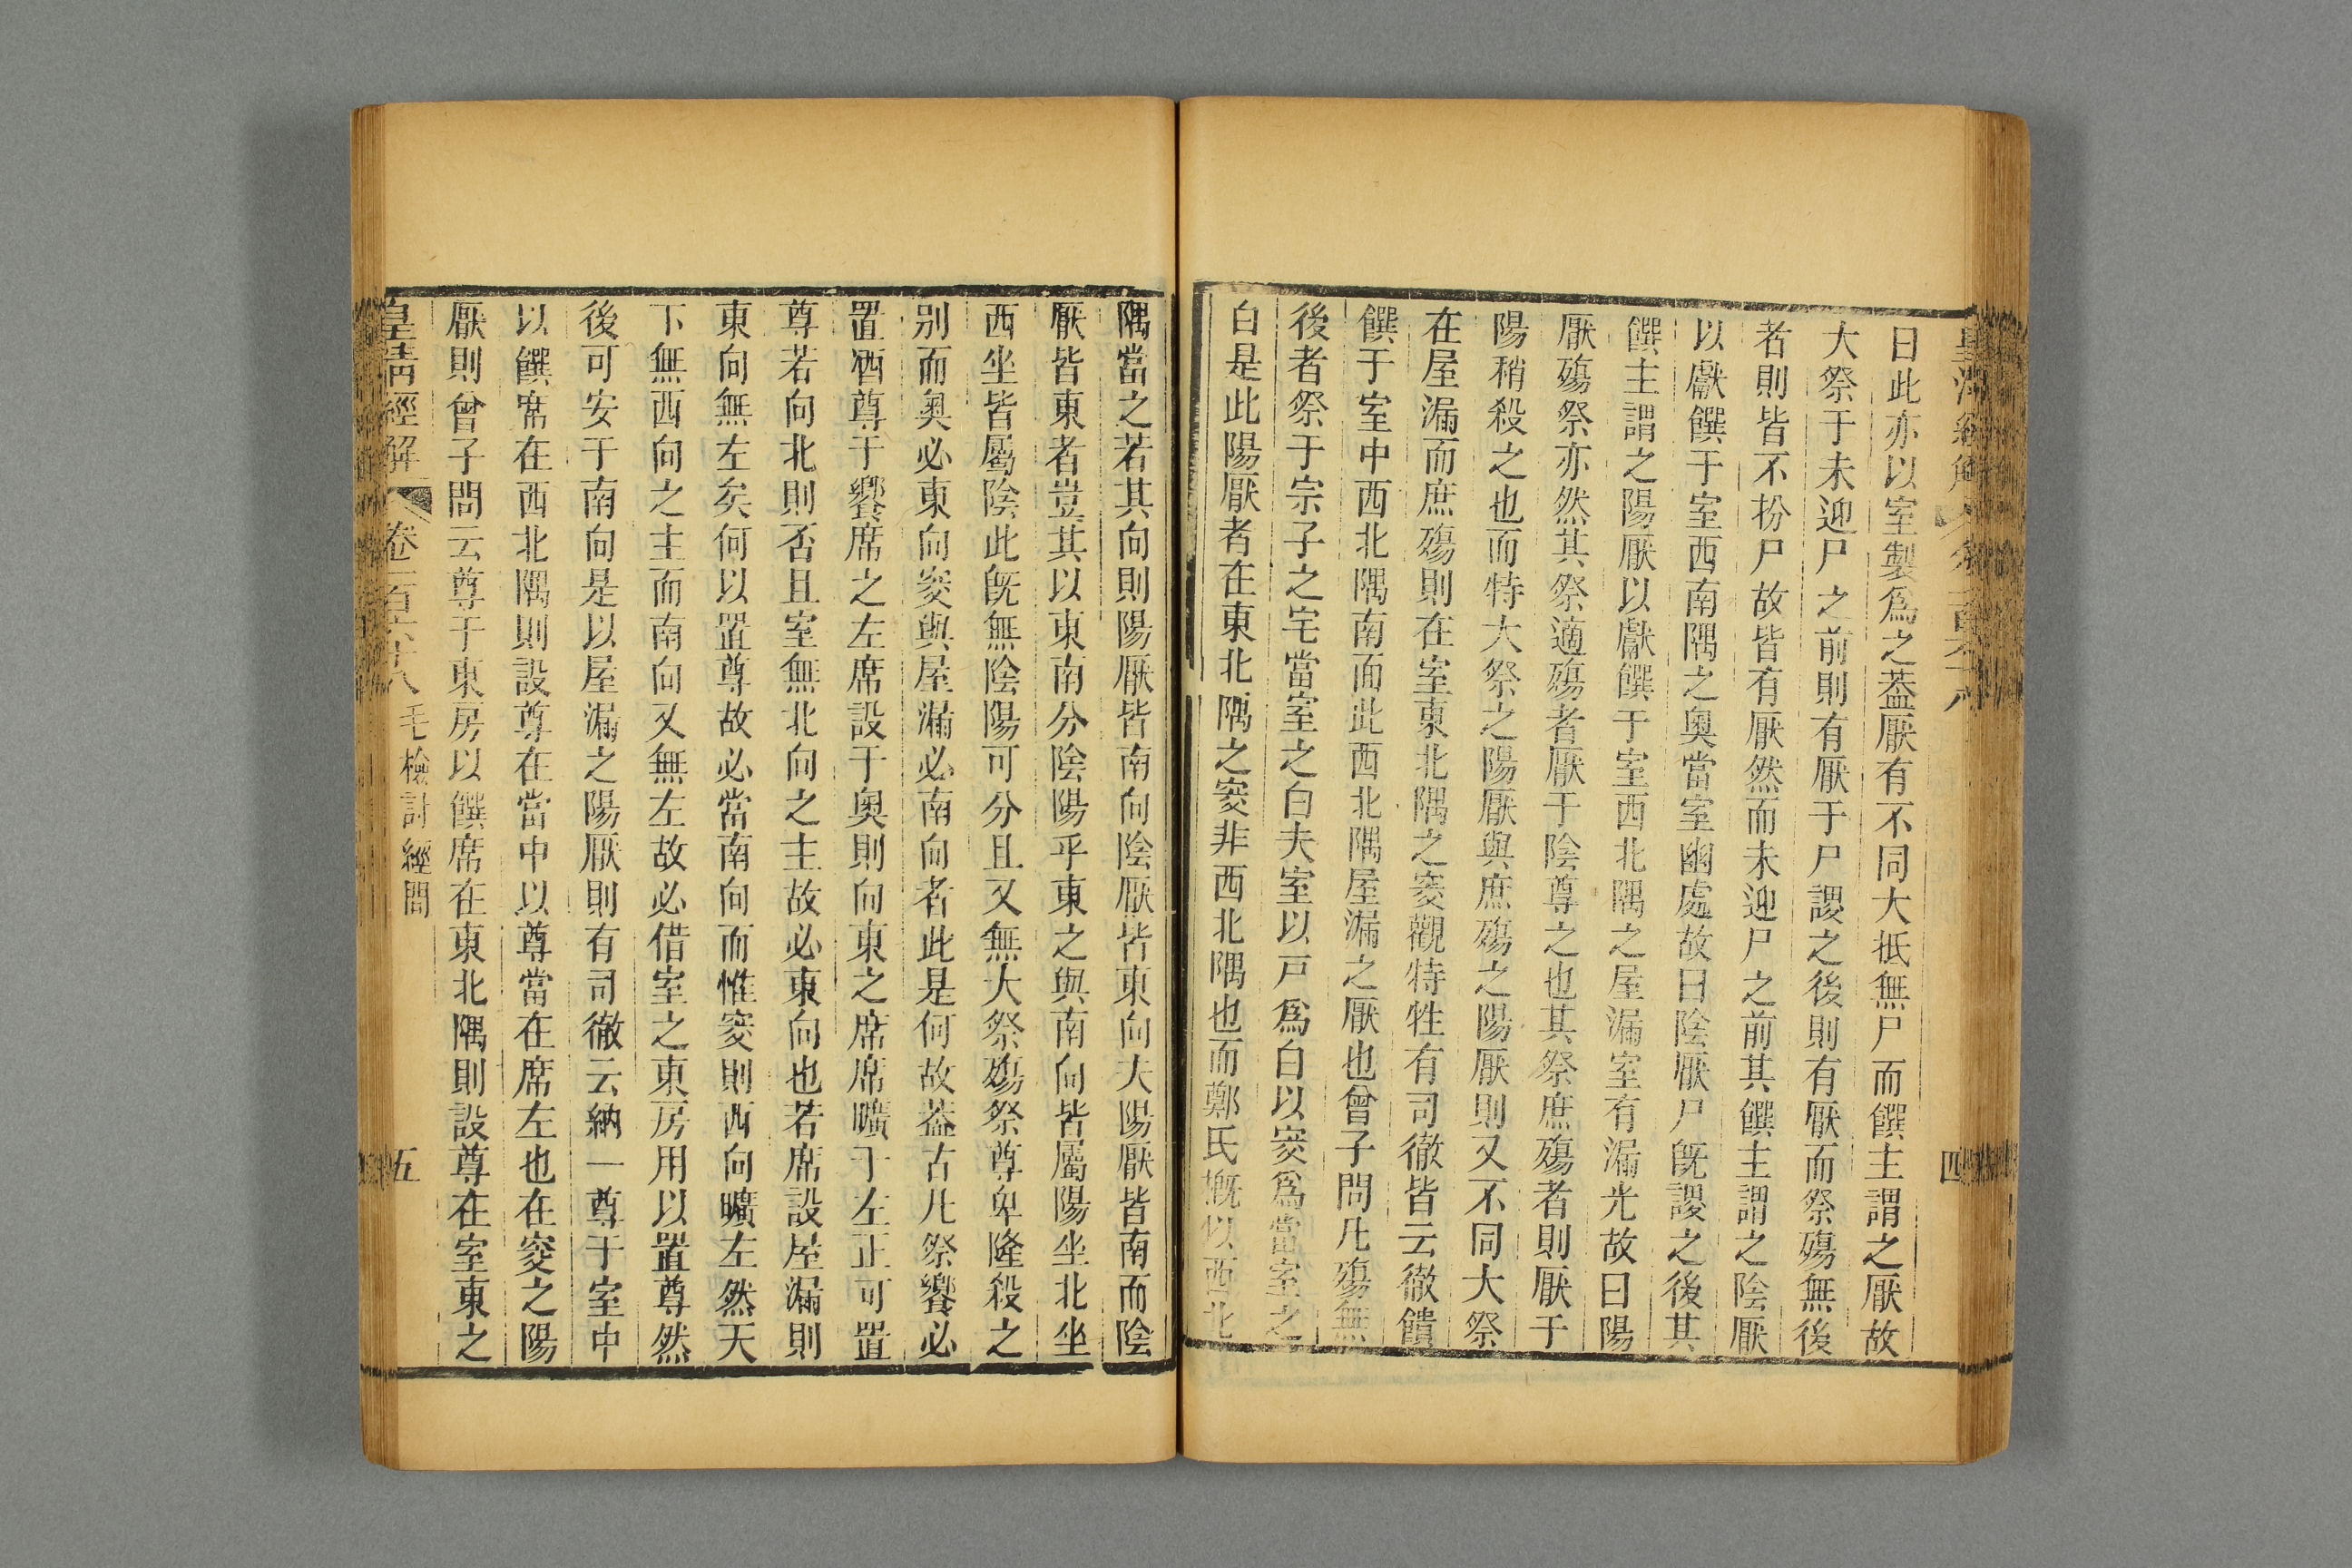 日此亦以室製爲之葢厭有不同大抵無尸而饌主謂之厭故
大祭于未迎尸之前則有厭于尸謖之後則有厭而祭殤無後
者則皆不扮尸故皆有厭然而未迎尸之前其饌主謂之陰厭
以獻饌于室西南隅之奧當室幽處故曰陰厭尸旣謖之後其
饌主謂之陽厭以獻饌于室西北隅之屋漏室有漏光故曰陽
厭殤祭亦然其祭適殤者厭于陰尊之也其祭庶殤者則厭于
陽稍殺之也而特大祭之陽厭與庶殤之陽厭則又不同大祭
在屋漏而庶殤則在室東北隅之窔觀特牲有司徹皆云徹饋
饌于室中西北隅南面此西北隅屋漏之厭也曾子問凡殤無
後者祭于宗子之宅當室之白夫室以戸爲白以窔爲當室之
白是此陽厭者在東北隅之窔非西北隅也而鄭氏槪以西北
隅當之若其向則陽厭皆南向陰厭皆東向夫陽厭皆南而陰
厭皆東者豈其以東南分陰陽乎東之與南向皆屬陽坐北坐
西坐皆屬陰此旣無陰陽可分且又無大祭殤祭尊卑隆殺之
别而奧必東向窔與屋漏必南向者此是何故葢古凡祭饗必
置酒尊于饗席之左席設于奧則向東之席席曠于左正可置
尊若向北則否且室無北向之主故必東向也若席設屋漏則
東向無左矣何以置尊故必當南向而惟窔則西向曠左然天
下無西向之主而南向又無左故必借室之東房用以置尊然
後可安于南向是以屋漏之陽厭則有司徹云納一尊于室中
以饌席在西北隅則設尊在當中以尊當在席左也在窔之陽
厭則曾子問云尊于東房以饌席在東北隅則設尊在室東之
皇淸經解 卷一百六十八 毛檢討經問 五